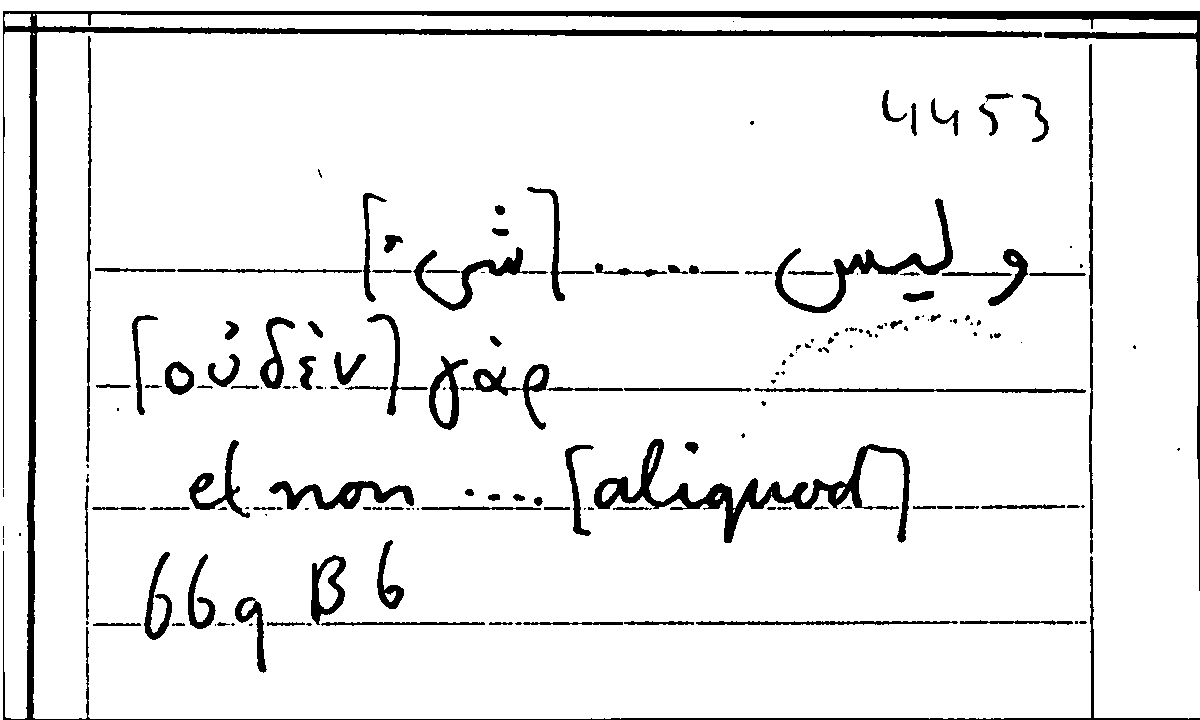 4453
وليس ..... [شىء]
[οὐδὲν] γὰρ
et non .... [aliquod]
669 B 6